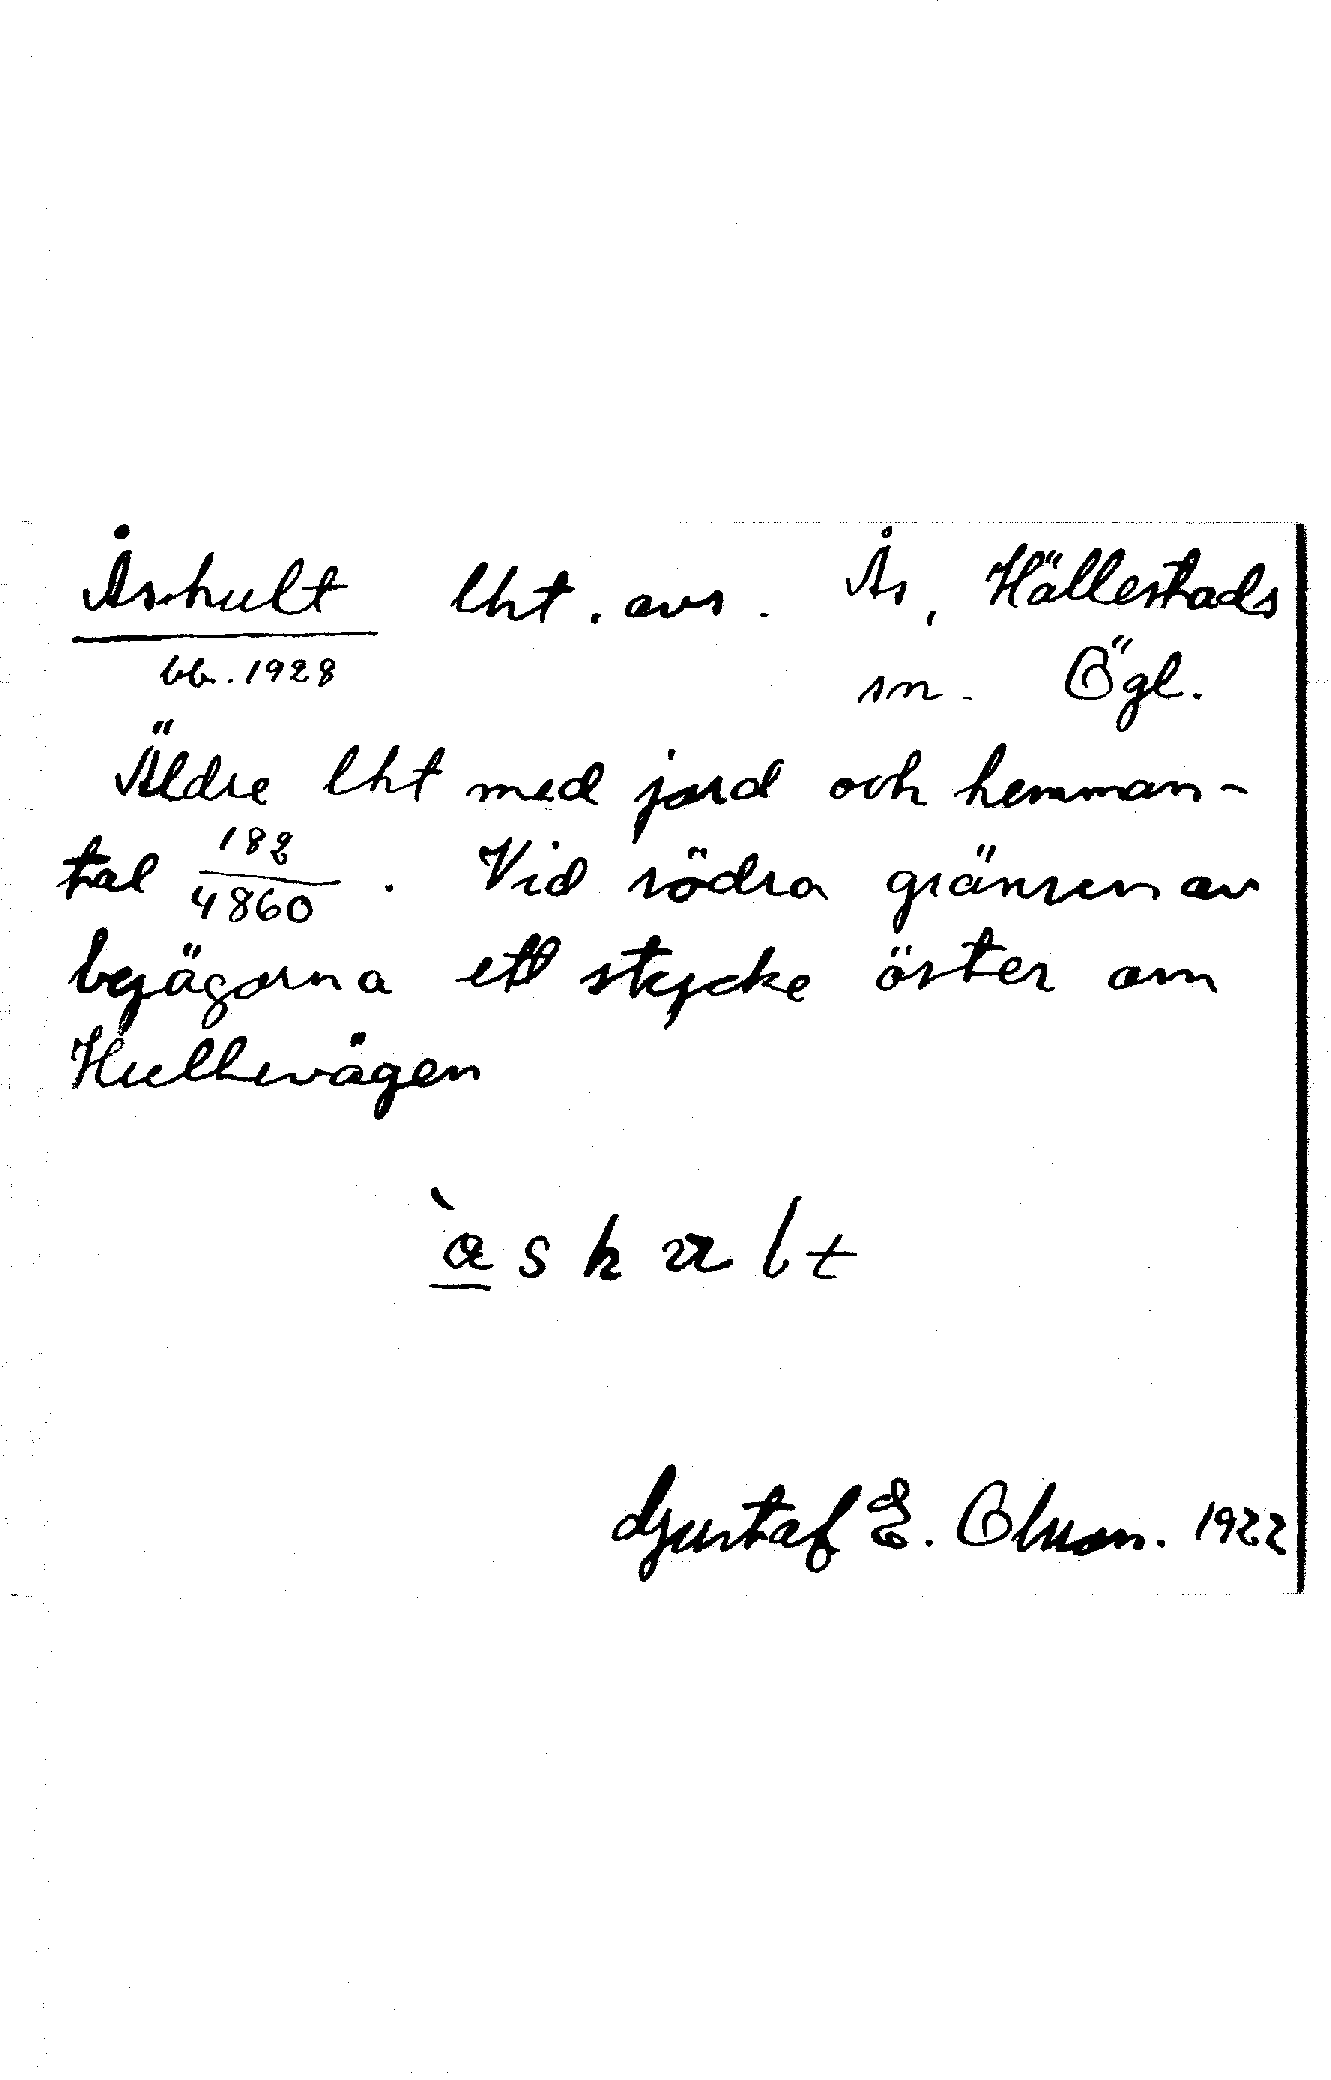 Åshult lht. avs. Ås, Hällestads
bb. 1928 sn. Ögl.
Äldre lht med jord och hemman-
tal 182/4860. Vid södra gränsen av
byägorna ett stycke öster om
Hultevägen
Gustaf E. Olsson. 1922